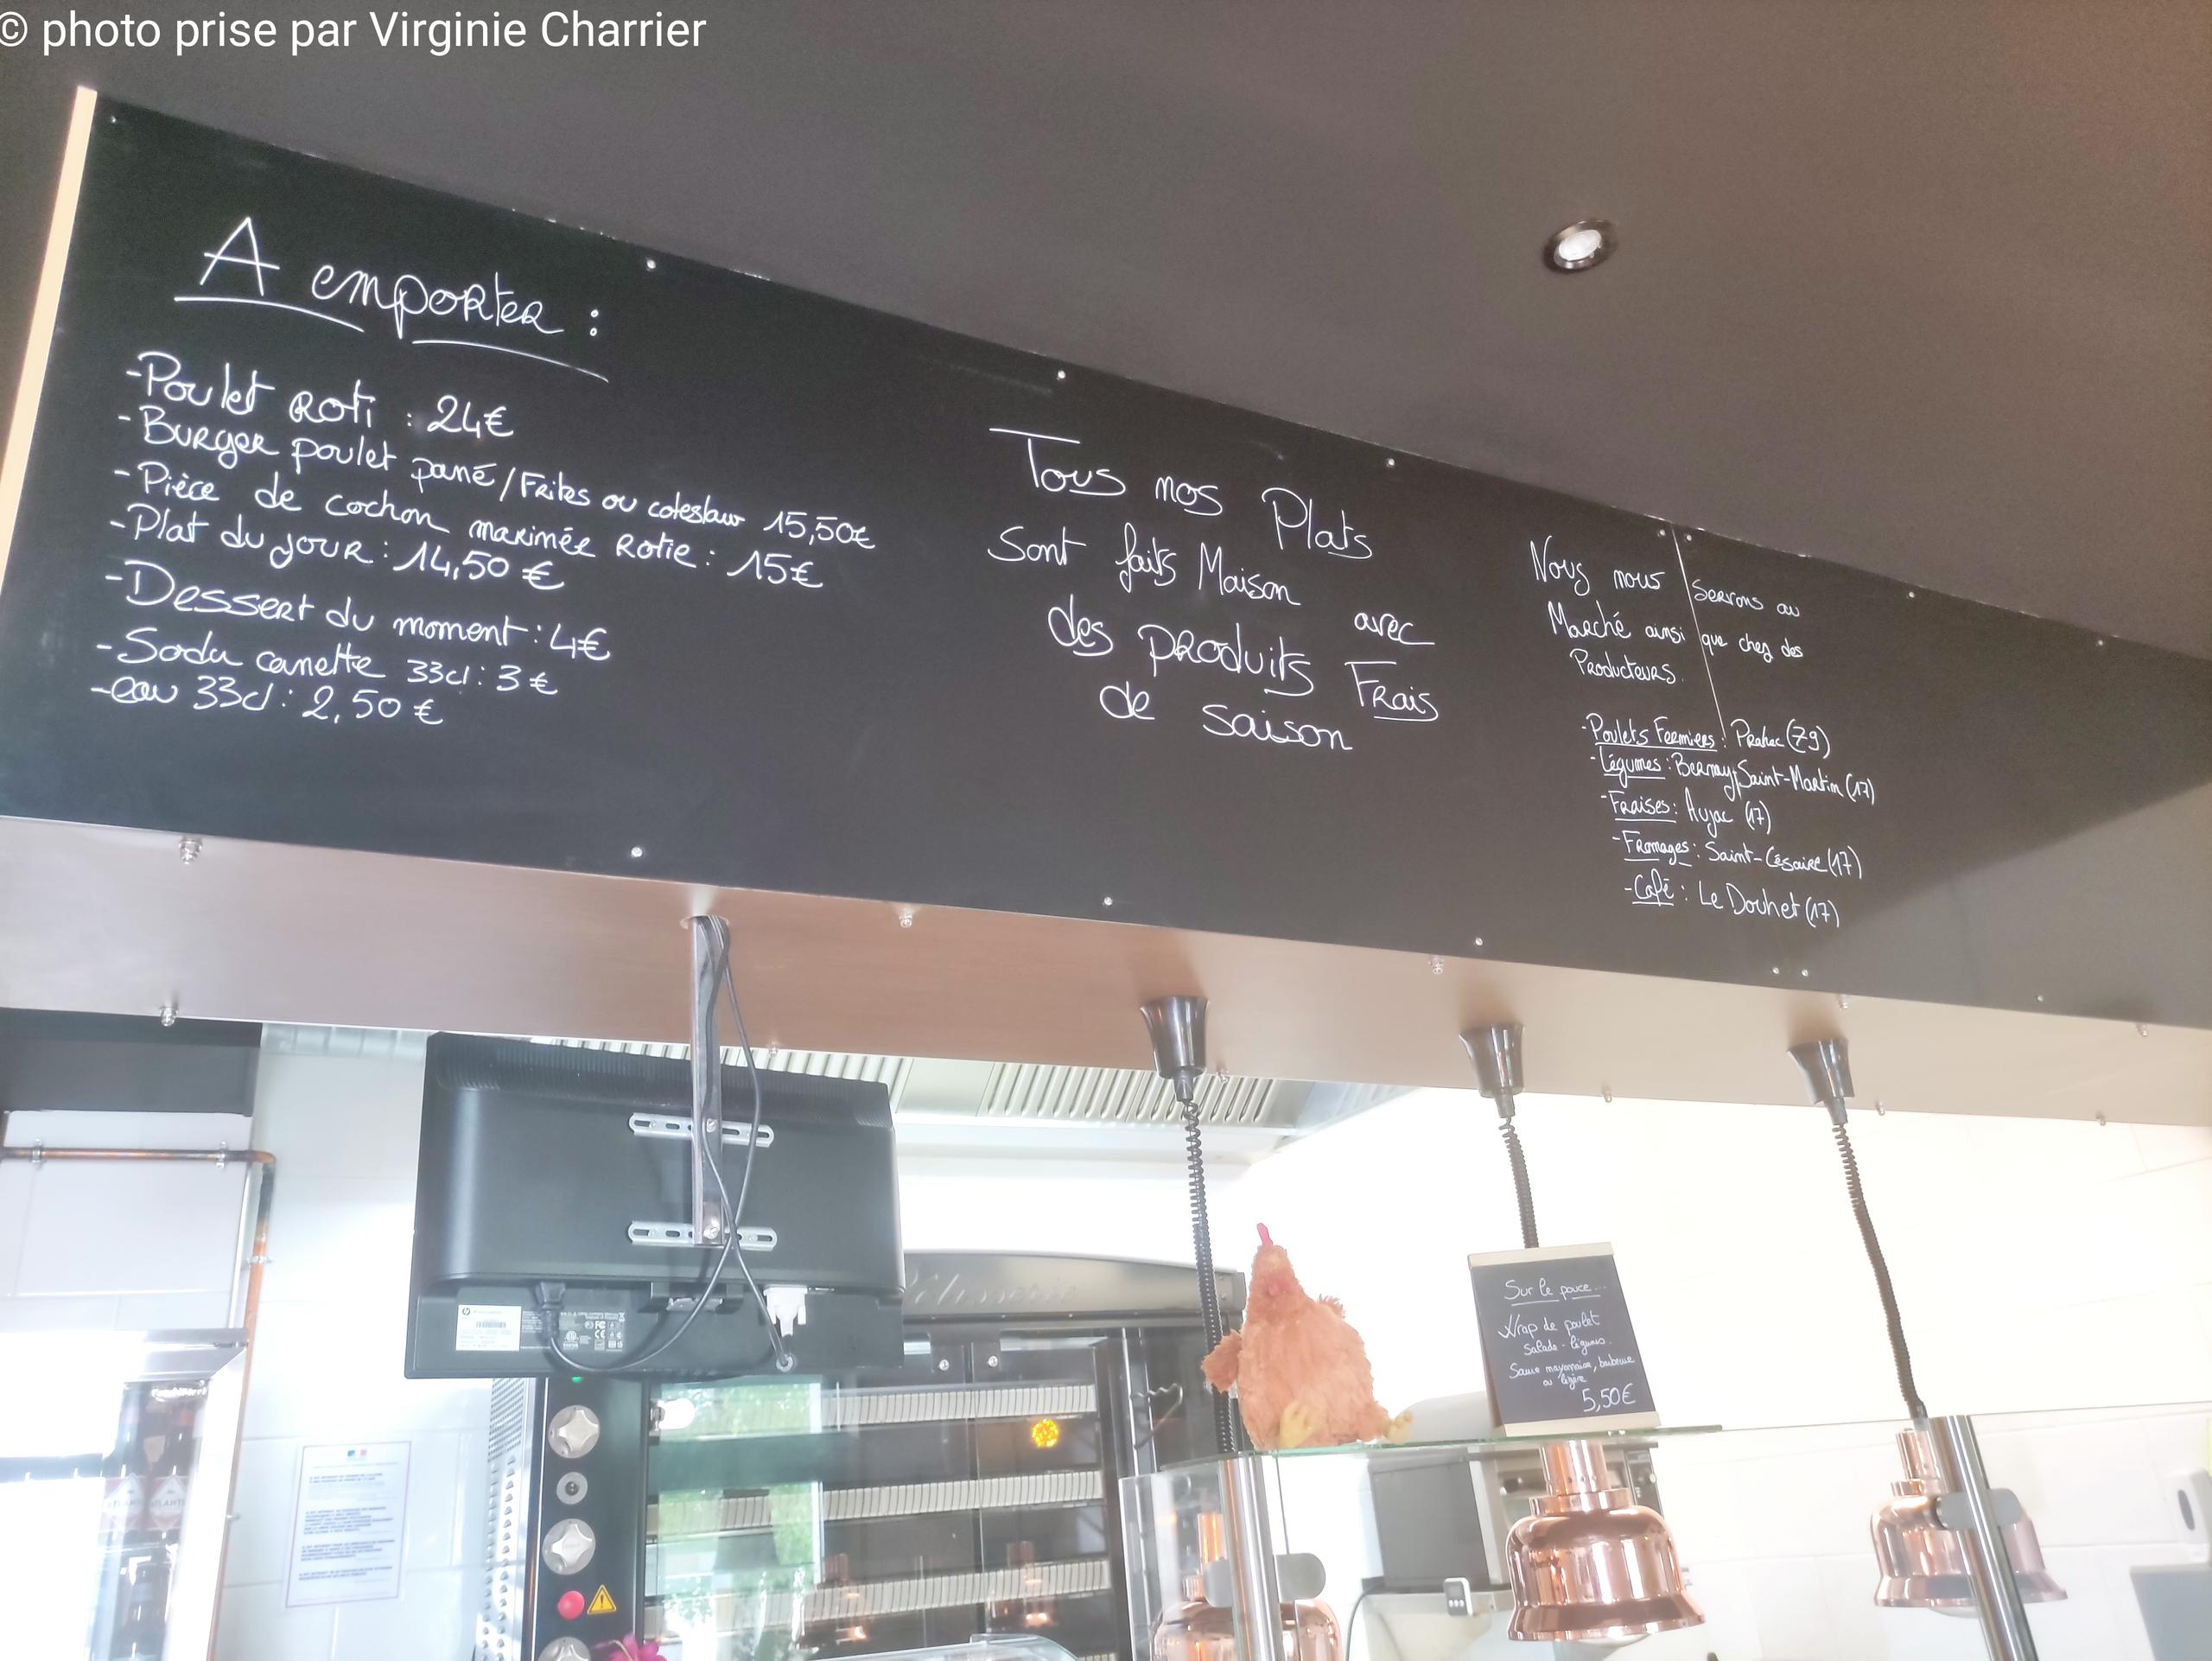 © photo prise par Virginie Charrier
A emporter :
-Poulet Roti : 24€
-Burger poulet pané / Frites ou coleslaw 15,50€
-Pièce de cochon marinée Rotie : 15€
-Plat du jour : 14,50 €
-Dessert du moment : 4€
-Soda canette 33cl : 3 €
-eau 33cl : 2,50 €
Tous nos Plats
Sont faits Maison avec
des produits Frais
de saison
Nous nous Servons au
Marché ainsi que chez des
Producteurs.
-Poulets Fermiers : (79)
-Légumes : Bernay-Saint-Martin (17)
-Fraises : Aujac (17)
-Fromages : Saint-Césaire (17)
-Café : Le Douhet (17)
Sur le pouce...
Wrap de poulet
Salade - légumes.
Sauce mayonnaise, barbecue
ou légère
5,50€